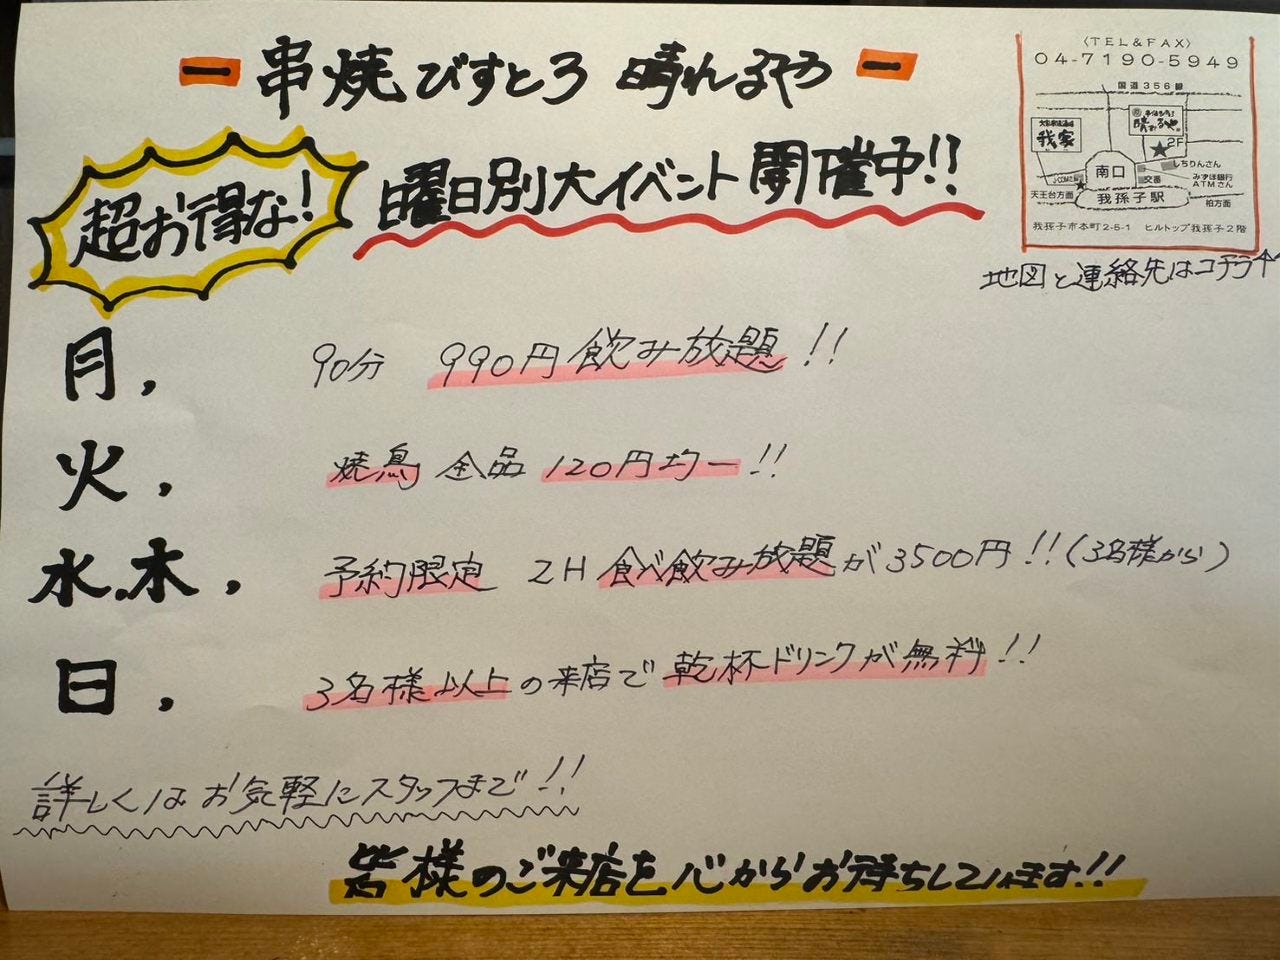 ー 串焼びすとろ 晴れるやっ ー
超お得な!
曜日別大イベント開催中!!
〈TEL&FAX〉
04-7190-5949
国道356線
晴れるや
2F
我家
しちりんさん
南口
交番
みずほ銀行
ATMさん
天王台方面
我孫子駅
柏方面
我孫子市本町2-5-1 ヒルトップ我孫子2階
地図と連絡先はコチラ↑
月, 90分 990円飲み放題!!
火, 焼鳥 全品 120円均一!!
水.木, 予約限定 2H 食べ飲み放題が3500円!!(3名様から)
日, 3名様以上の来店で乾杯ドリンクが無料!!
詳しくはお気軽にスタッフまで!!
皆様のご来店を心からお待ちしています!!